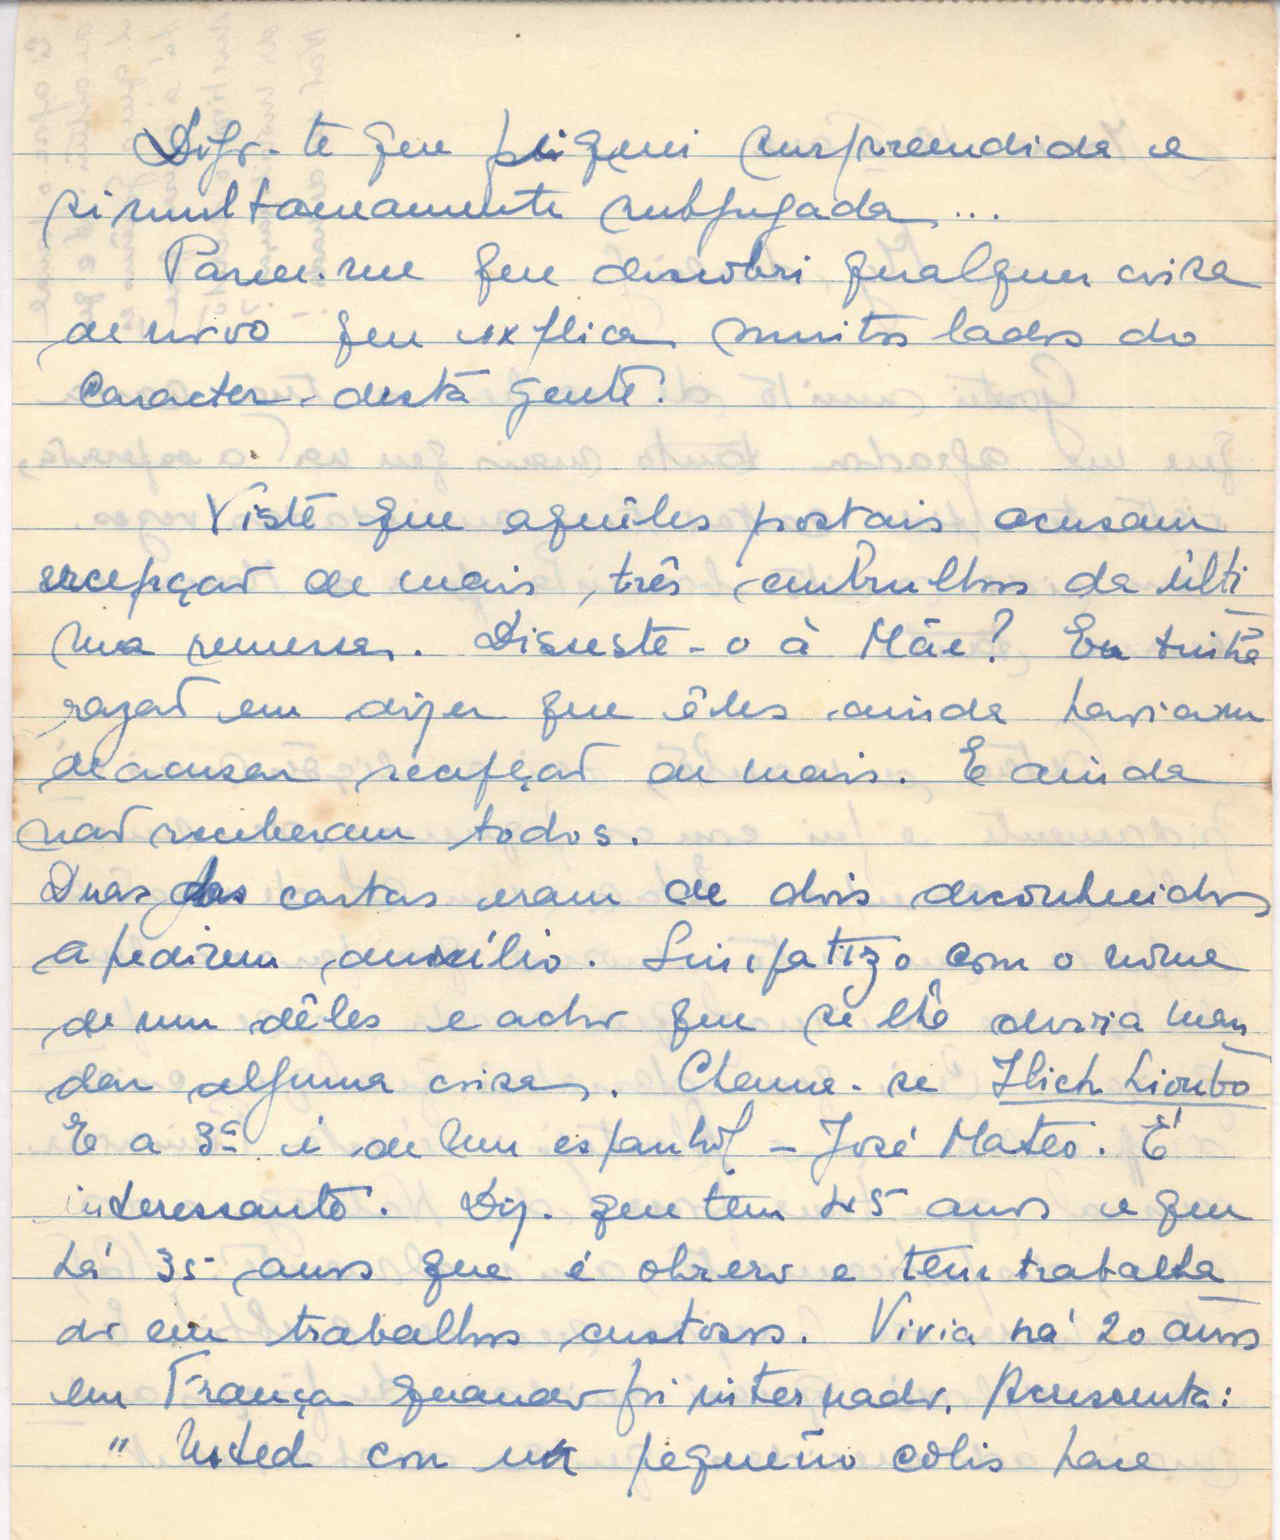 Digo-te que fiquei surpreendida e
simultaneamente subjugada...
Parece-me que descobri qualquer coisa
de novo que explica muitos lados do
caracter desta gente.
Viste que aquêles postais acusam
recepção de mais três embrulhos da últi
ma remessa. Disseste-o à Mãe? Eu tinha
razão em dizer que êles ainda haviam
de acusar recepção de mais. E ainda
não receberam todos.
Duas das cartas eram de dois desconhecidos
a pedirem auxílio. Simpatizo com o nome
de um dêles e acho que se lhe devia man
dar alguma coisa. Chama-se Ilich Lioubo
E a 3ª é de um espanhol - José Mateo. É
interessante. Diz que tem 45 anos e que
há 35 anos que é obrero e tem trabalha
do em trabalhos custosos. Vivia há 20 anos
em França quando foi internado. Acrescenta:
" Usted con un pequeño colis hace